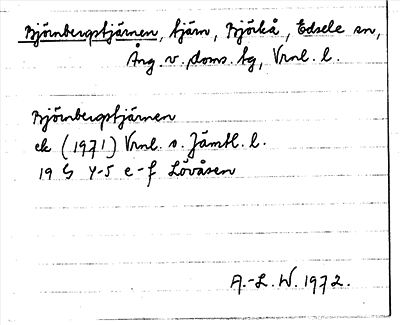 Björnbergstjärnen, tjärn, Björkå, Edsele sn,
Ång. v. doms. tg, Vrnl. l.
Björnbergstjärnen
ek (1971) Vrnl. o. Jämtl. l.
19 G 4-5 e-f Lövåsen
A.-L. W. 1972.